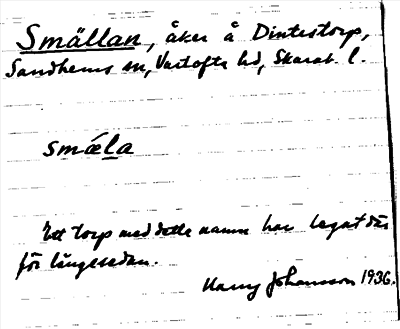 Smällan, åker å Dintestorp,
Sandhems sn, Vartofta hd, Skarab. l.
smǽla
Ett torp med detta namn har legat där
för längesedan.
Harry Johansson 1936.